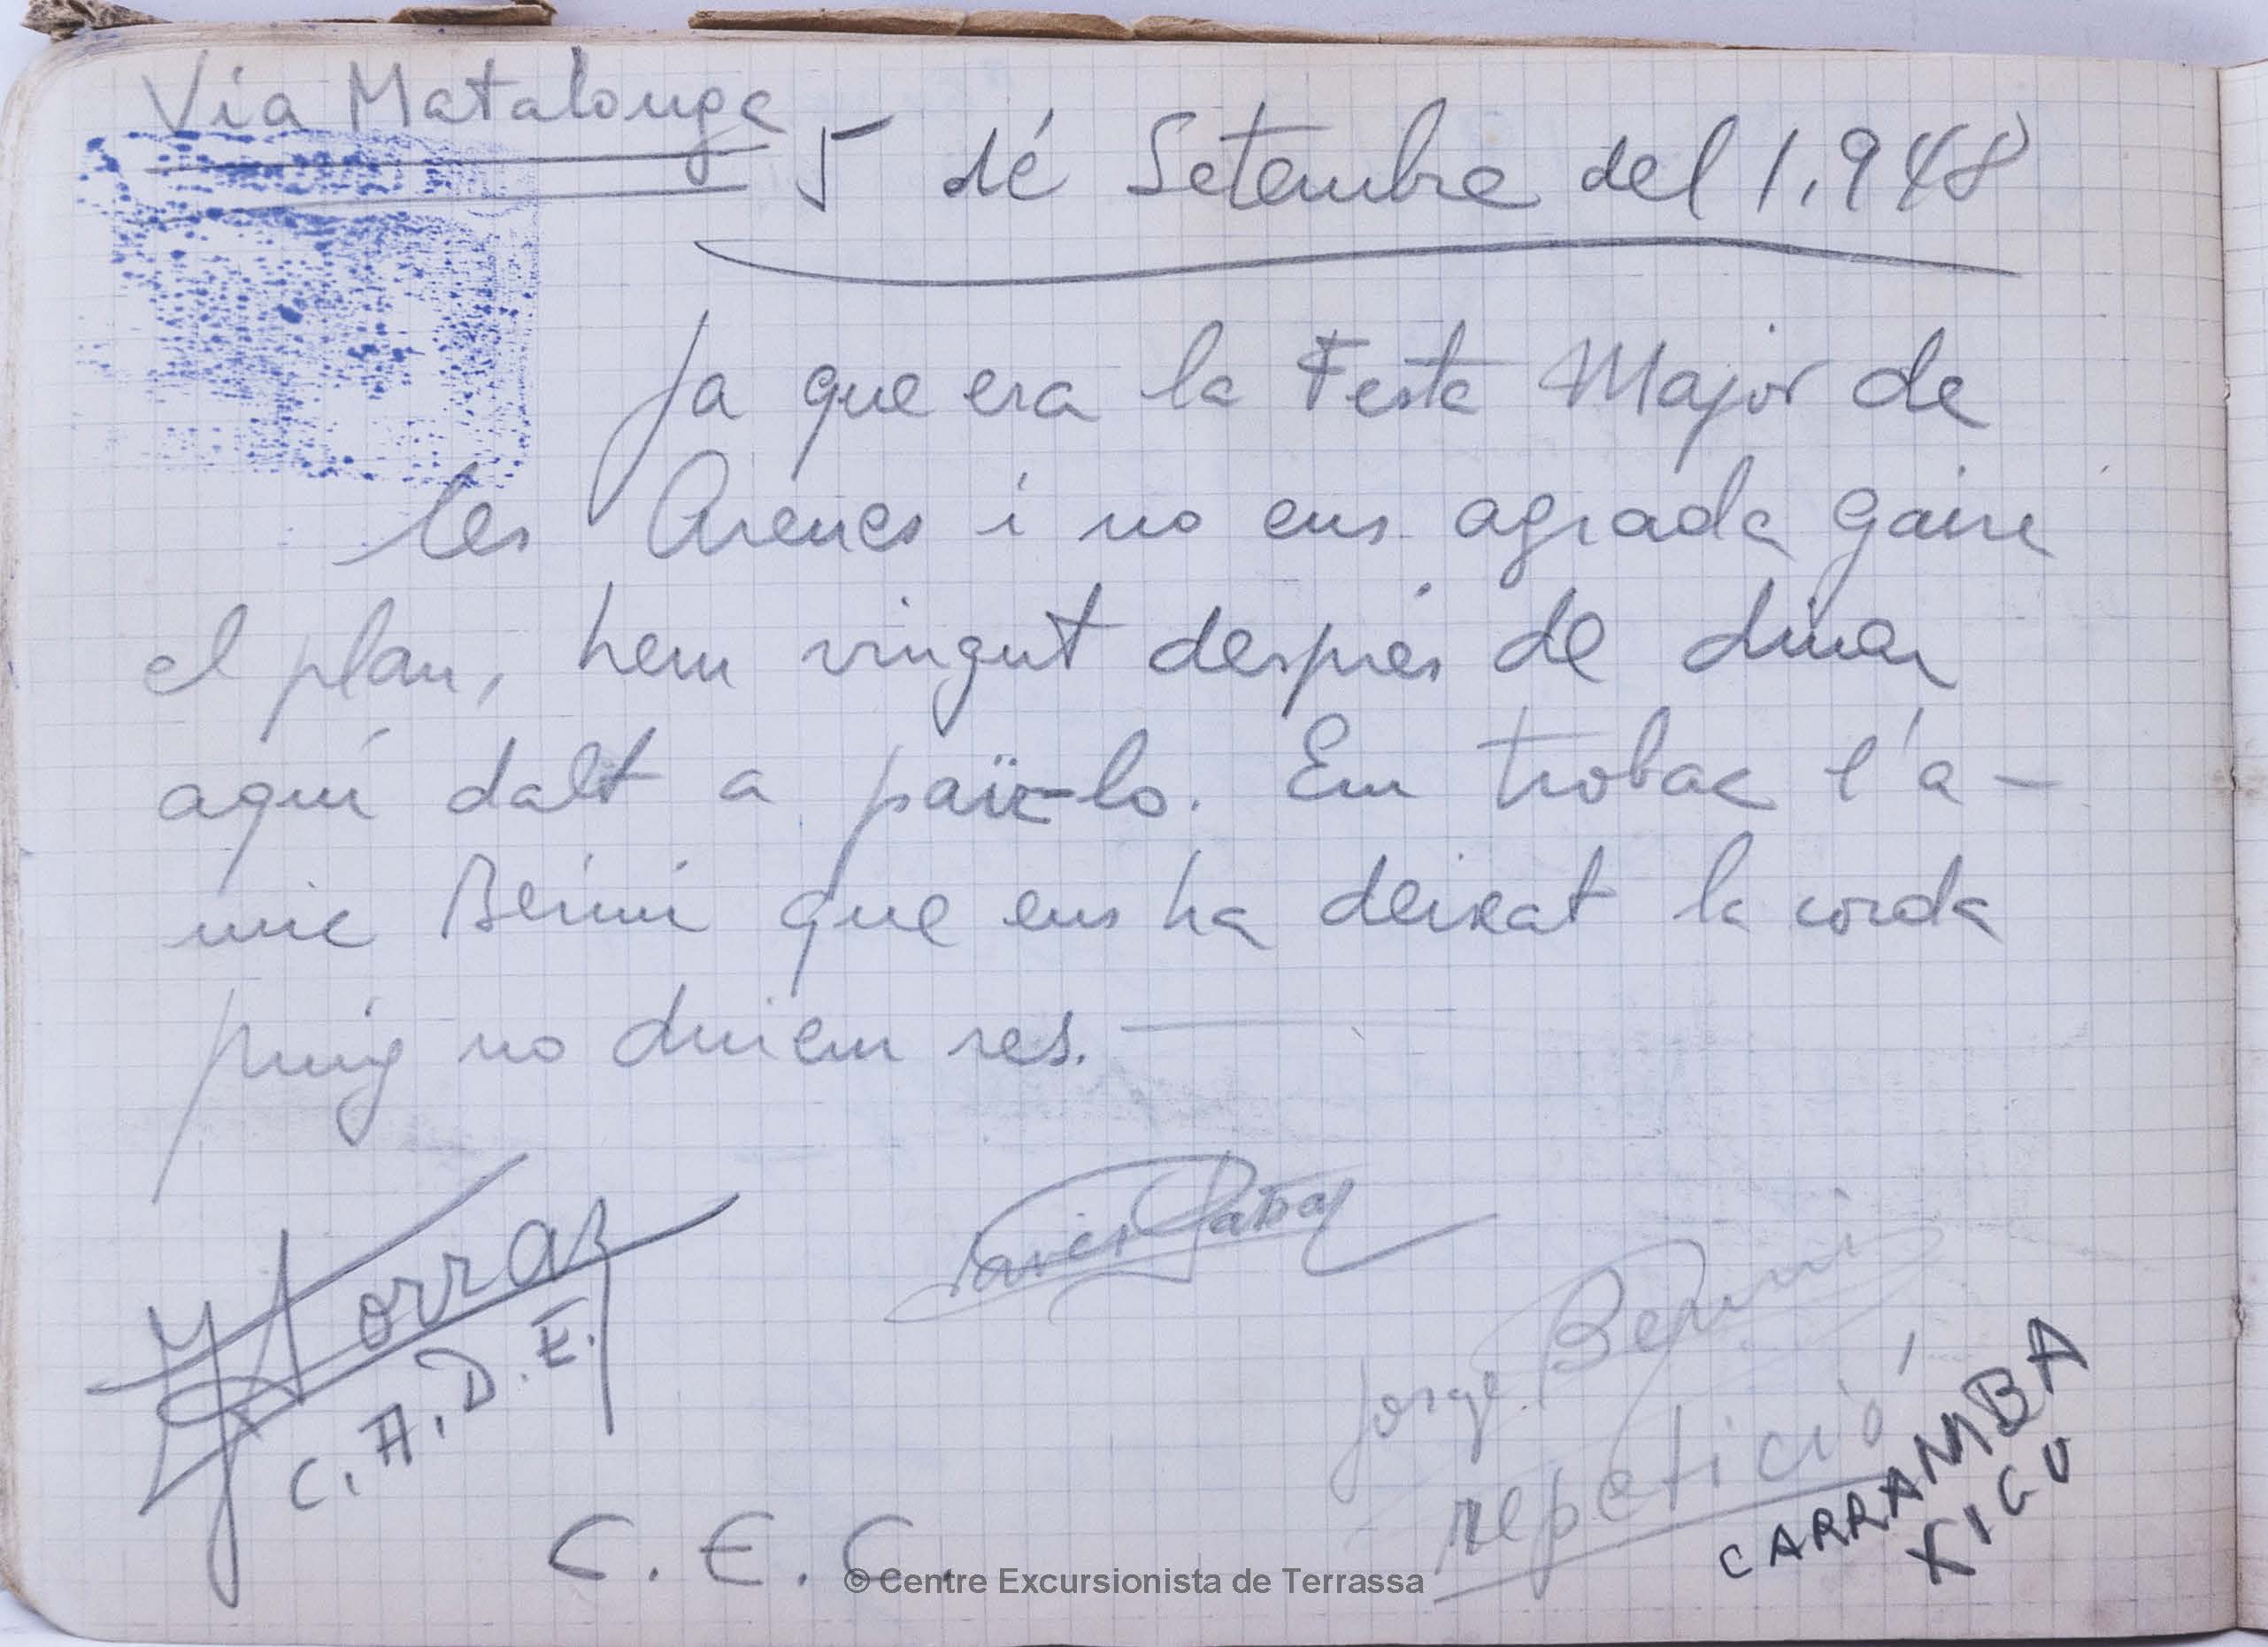 Via Matalonga
5 dé Setembre del 1,948
Ja que era la Festa Major de
les Arenes i no ens agrada gaire
el plan, hem vingut després de dinar
aquí dalt a païr-lo. Em trobac l'a-
mic Bernni que ens ha deixat la corda
puig no duiem res.
Jorras
C.A.D.E.
Javier
Jorge Bernni
repetició
CARRAMBA
XICU
C.E.C.
© Centre Excursionista de Terrassa